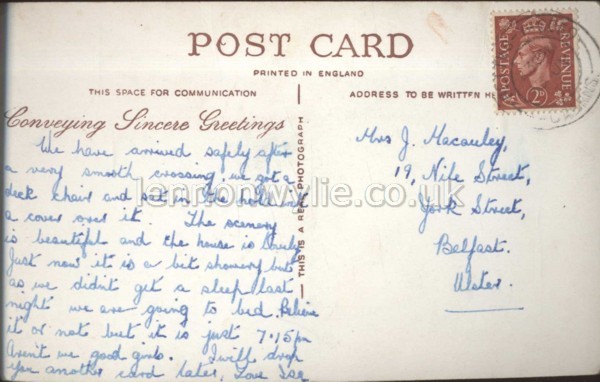 POST CARD
PRINTED IN ENGLAND
THIS SPACE FOR COMMUNICATION
ADDRESS TO BE WRITTEN HE
POSTAGE
REVENUE
2D
Conveying Sincere Greetings
We have arrived safely after
a very smooth crossing, we got a
deck chair and sat in the hold with
a cover over it. The scenery
is beautiful and the house is lovely
Just now it is a bit showery but
as we didn't get a sleep last
night we are going to bed. Believe
it or not but it is just 7.15pm
Aren't we good girls. I will drop
you another card later, Love
THIS IS A REAL PHOTOGRAPH
Mrs J. Macauley,
19, Nile Street,
York Street,
Belfast.
Ulster.
lennonwylie.co.uk